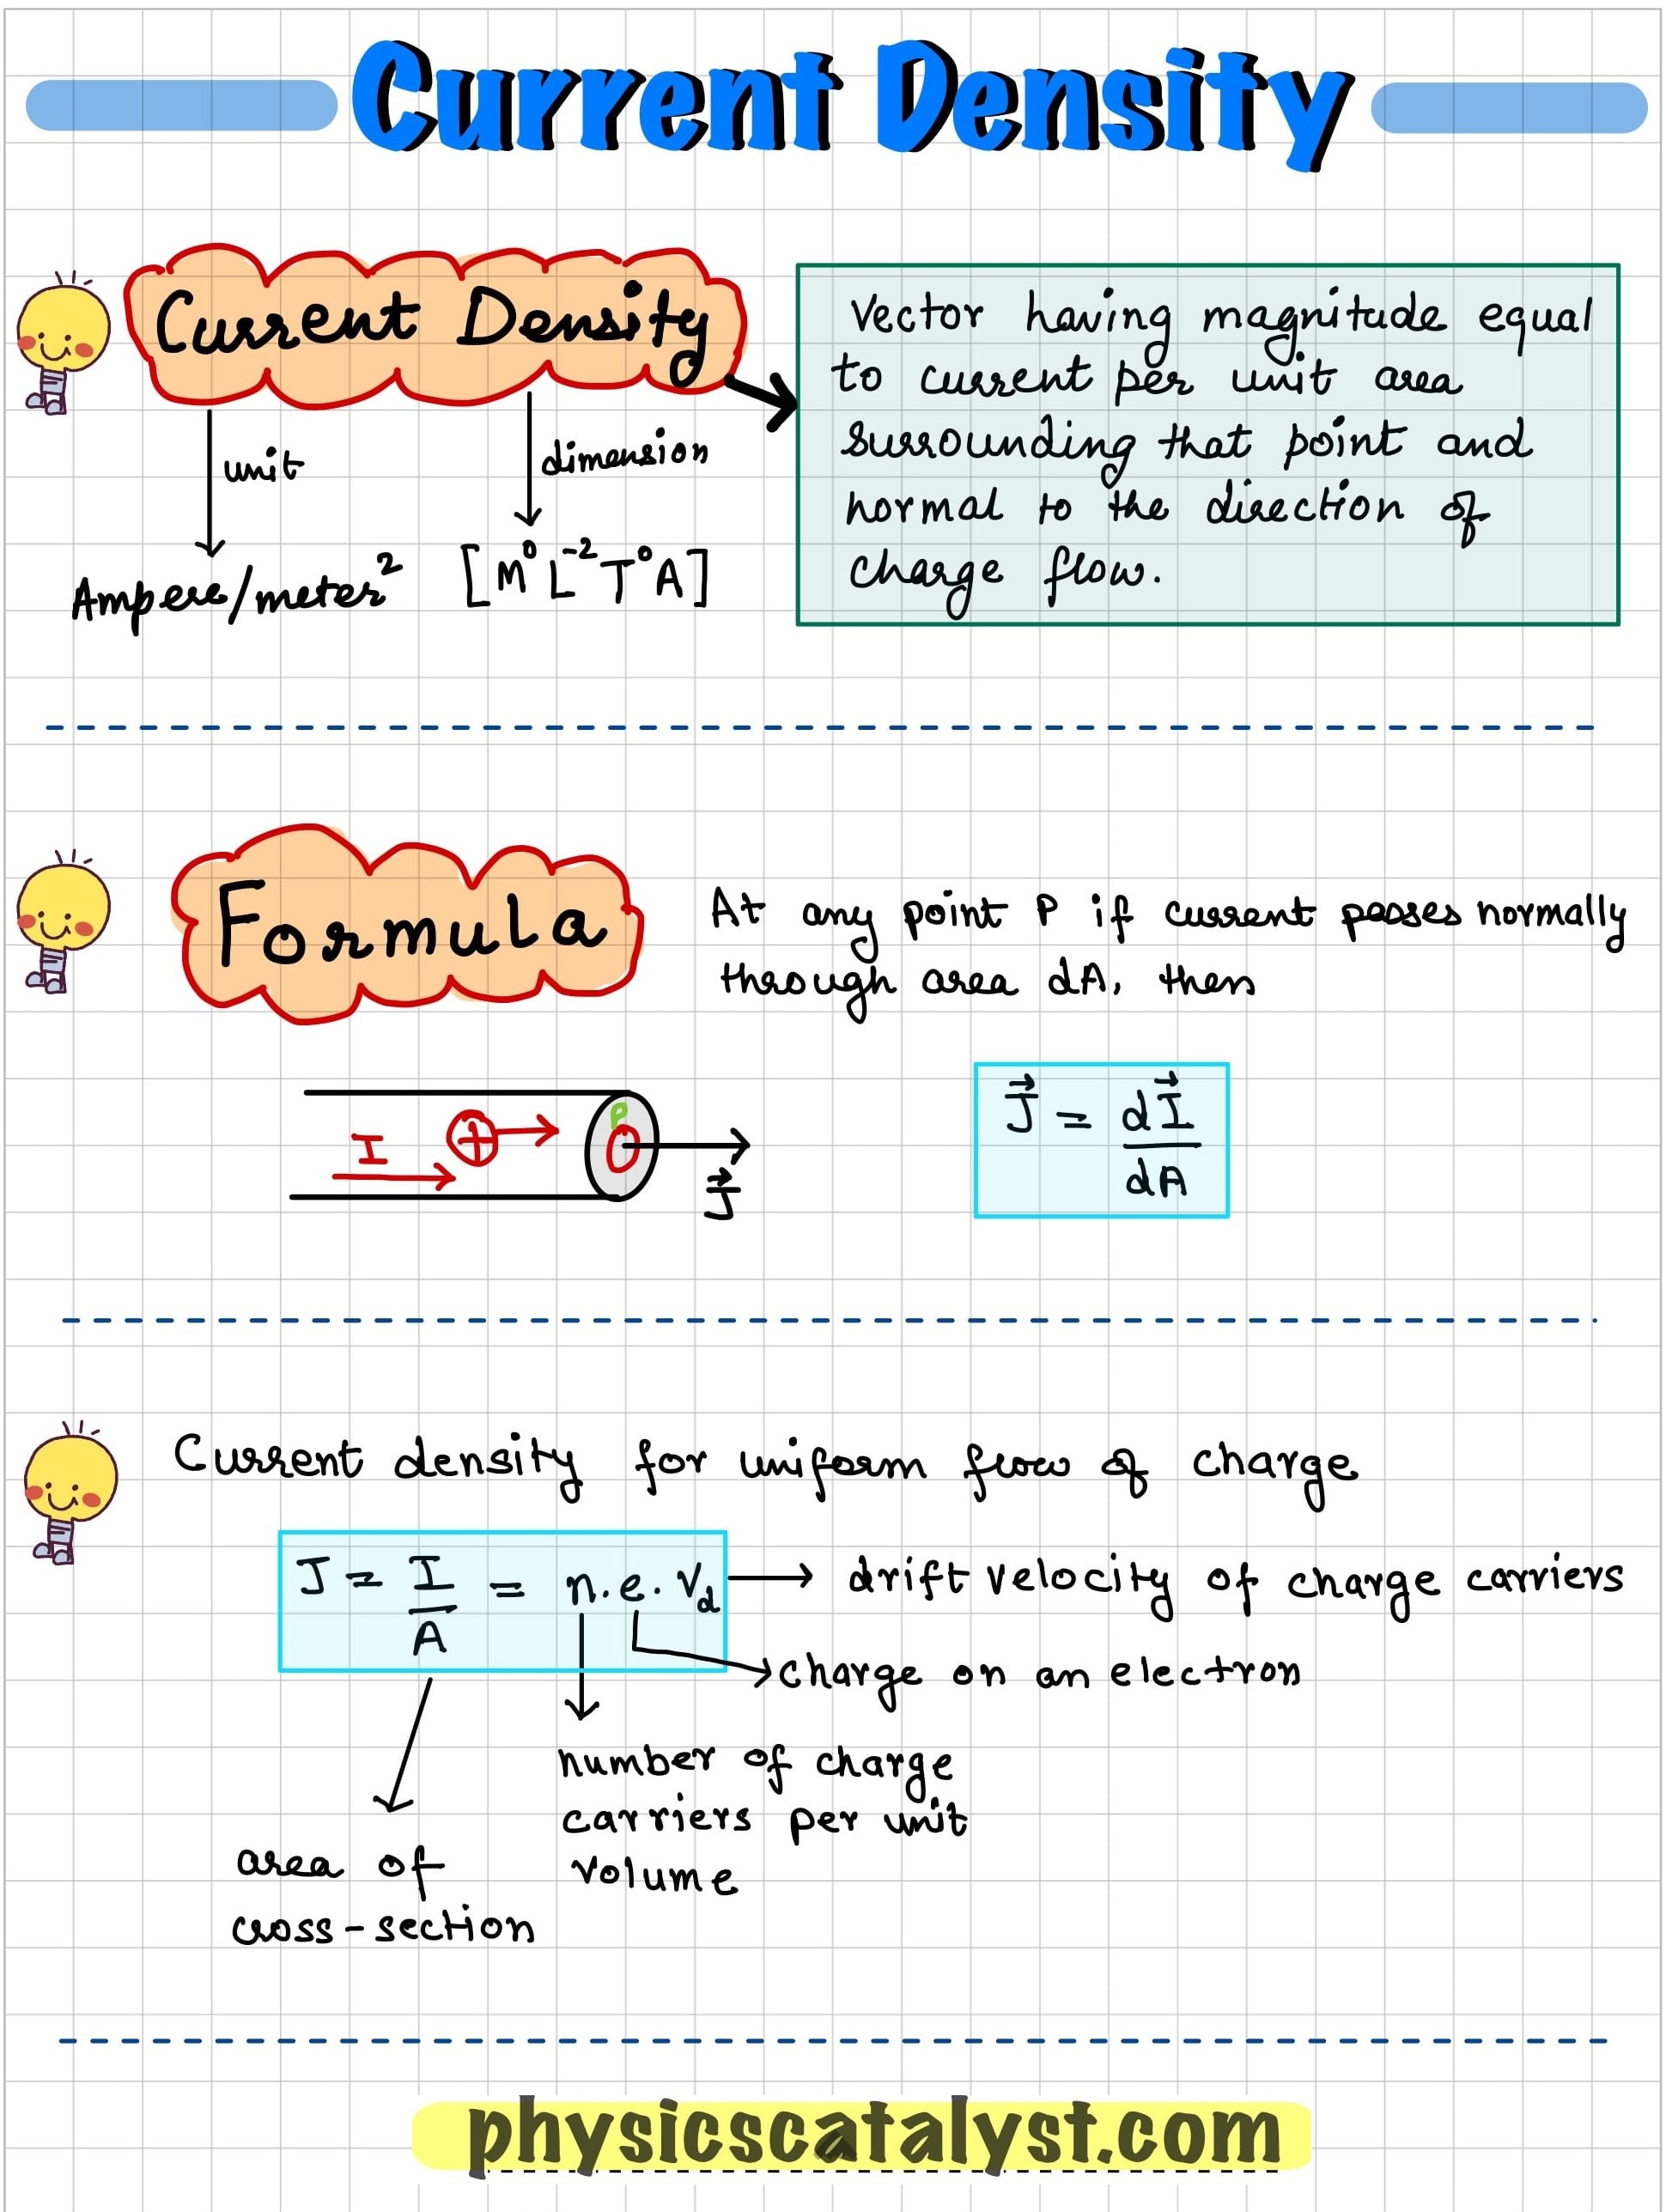 Current Density
Current Density
unit
dimension
Ampere/meter²
[M⁰L⁻²T⁰A]
Vector having magnitude equal
to current per unit area
surrounding that point and
normal to the direction of
charge flow.
Formula
At any point P if current passes normally
through area dA, then
I
+
P
J⃗
J⃗ = dI⃗/dA
Current density for uniform flow of charge
J = I/A = n.e.V_d
drift velocity of charge carriers
charge on an electron
number of charge
carriers per unit
volume
area of
cross-section
physicscatalyst.com